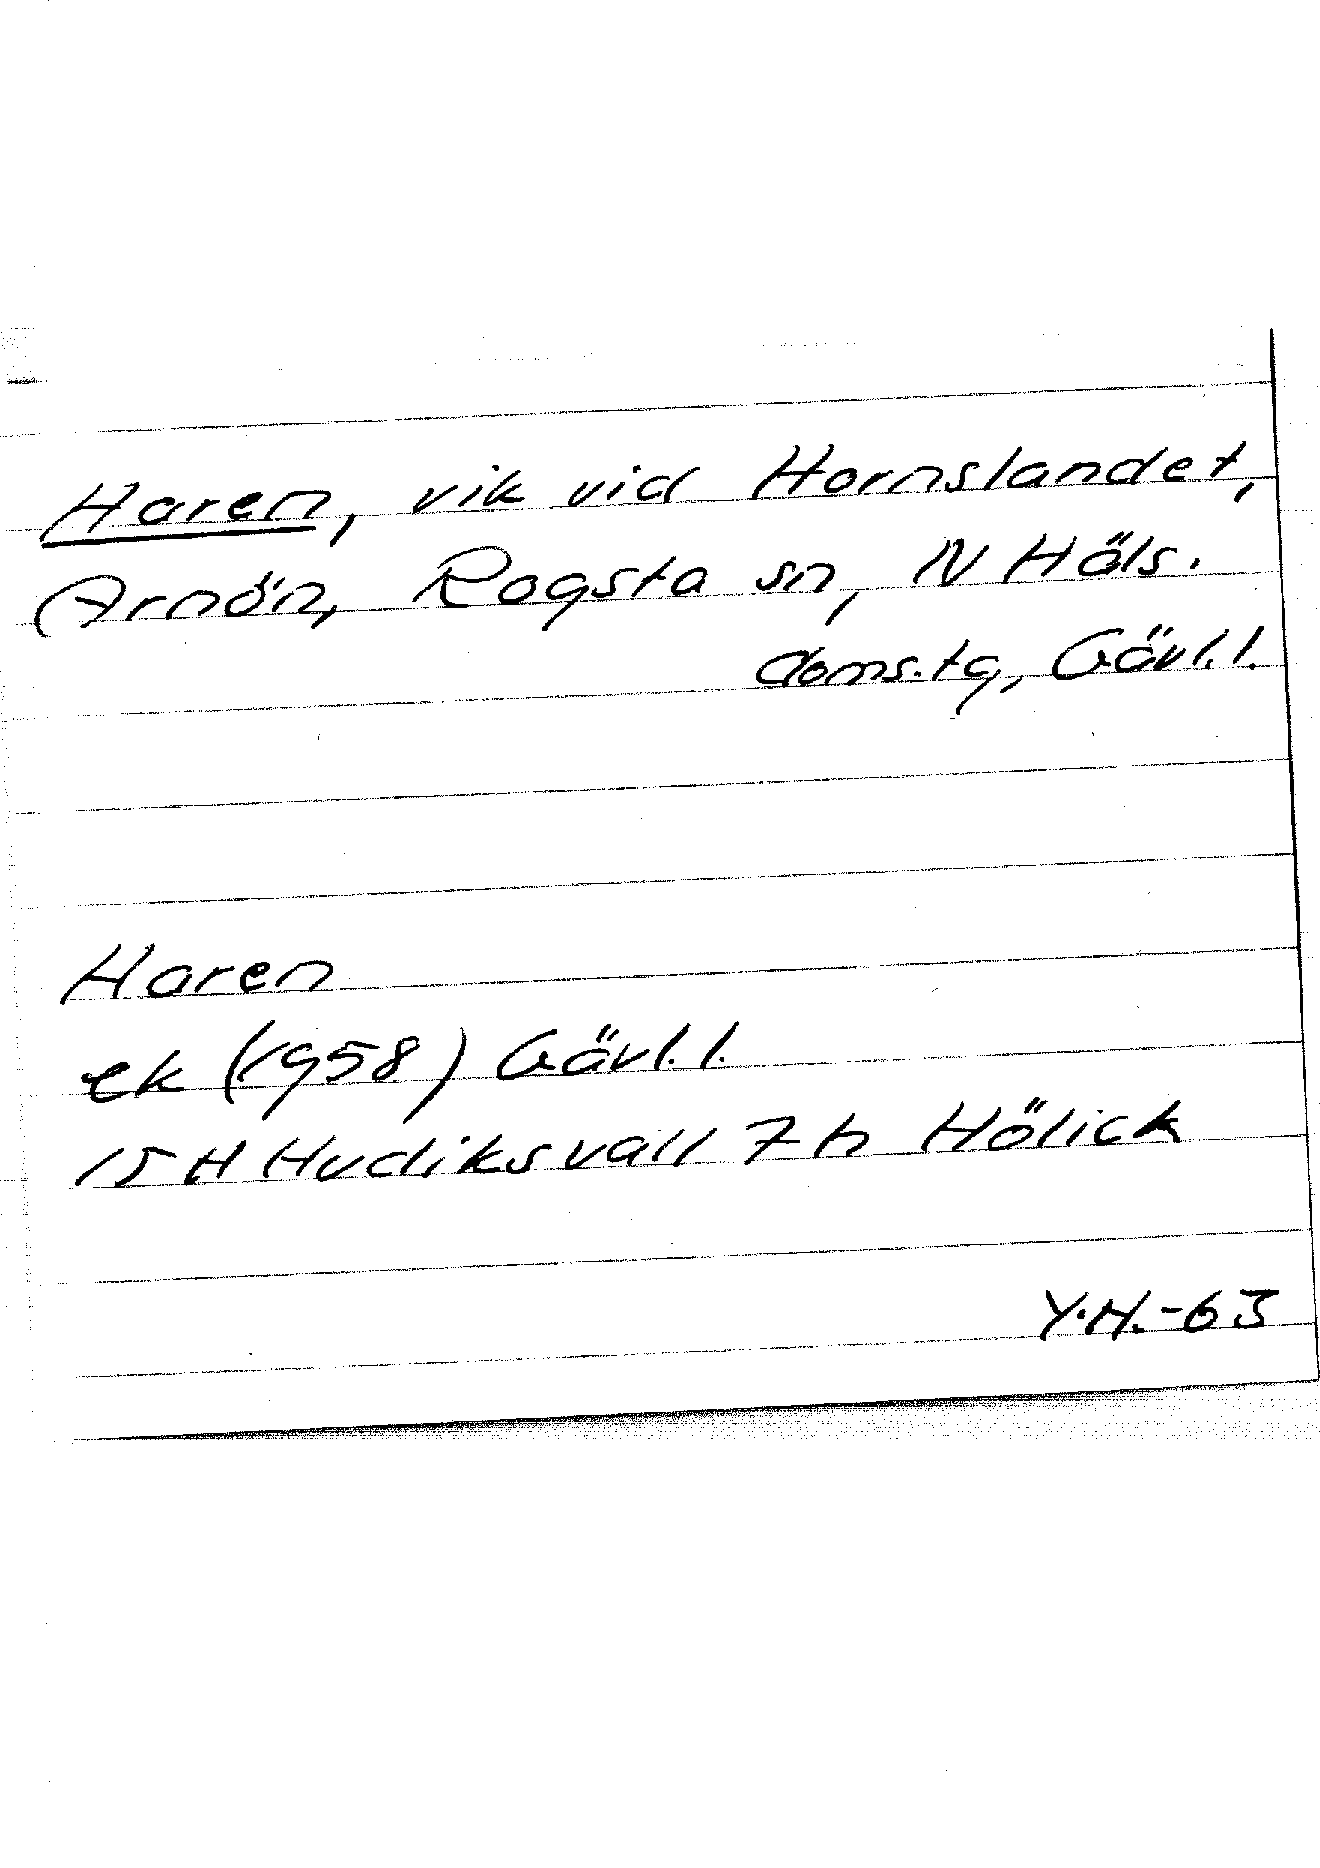 Haren, vik vid Hornslandet,
Arnön, Rogsta sn, N Häls.
doms.tg, Gävl.l.
Haren
ek (1958) Gävl.l.
15 H Hudiksvall 7 h Hölick
Y.H.-63